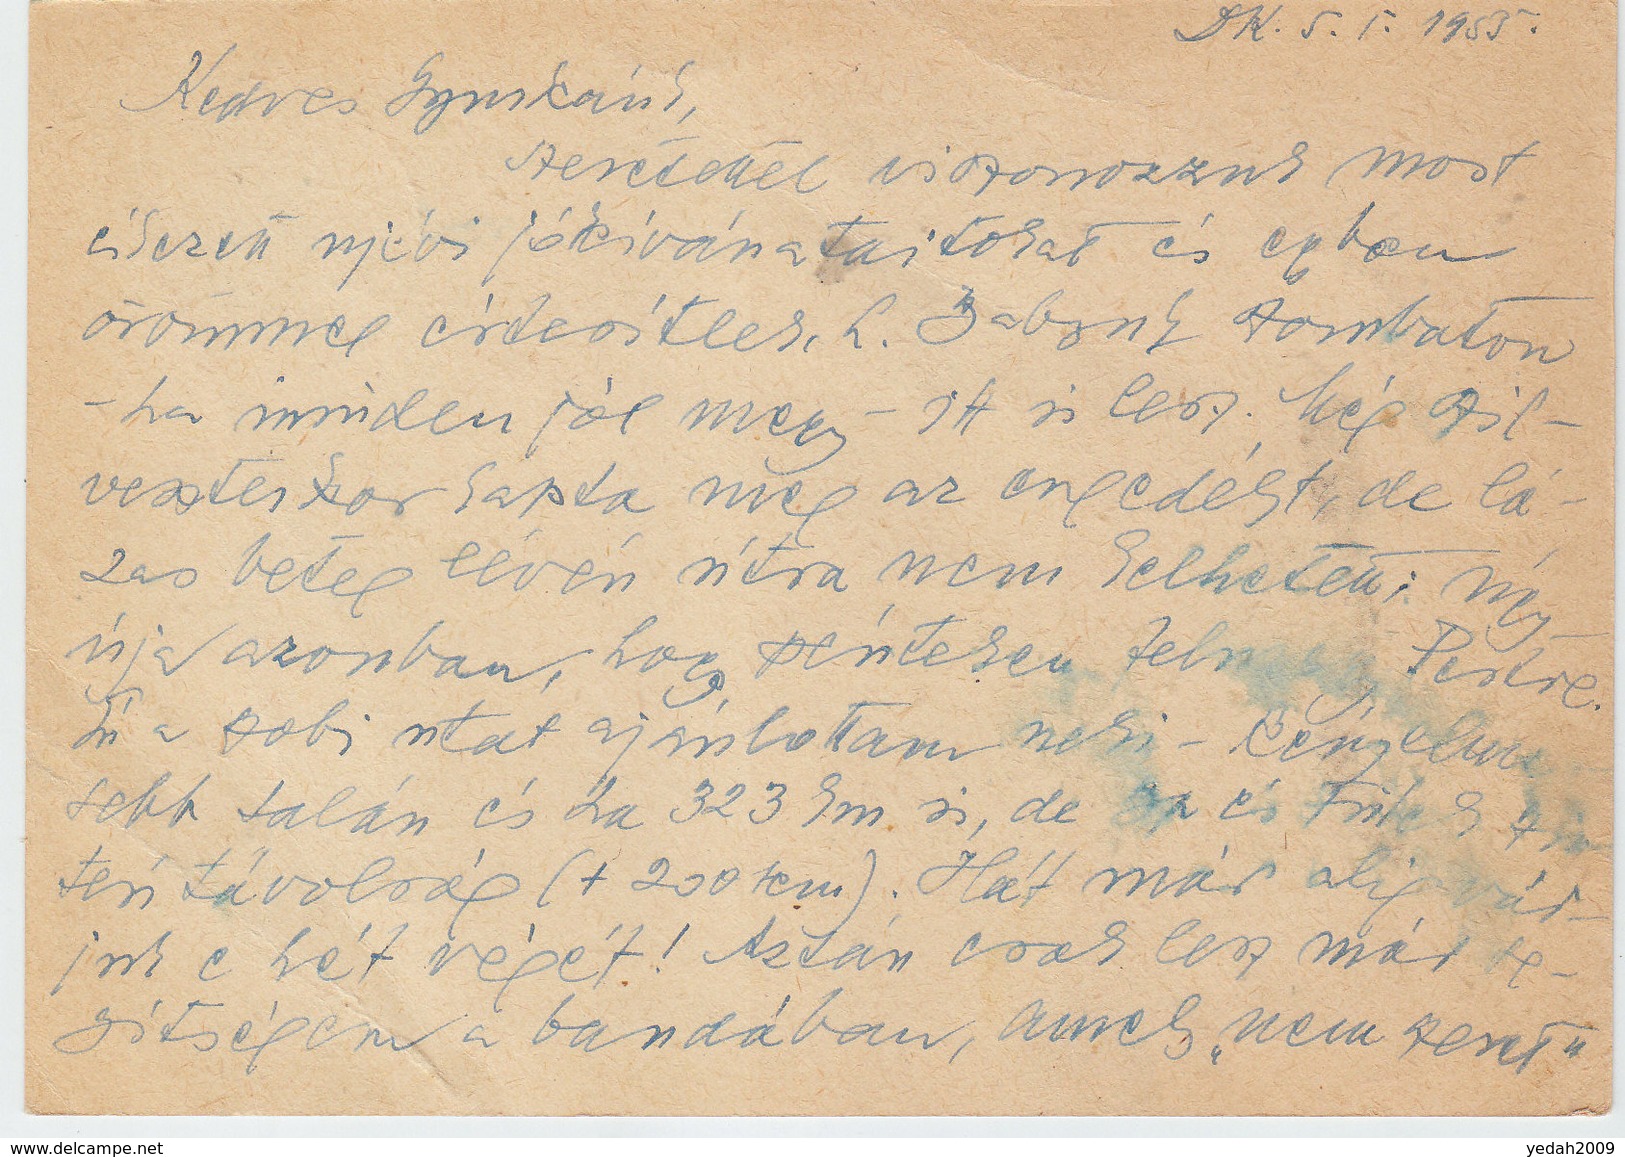 DK. 5. I. 1955.
Kedves Gyuskáék,
szeretettel viszonozzuk most
érkezett újévi jókívánataitokat és egyben
örömmel értesítlek, h. Babyuk szombaton
- ha minden jól megy - itt is lesz. Még Szil-
veszterkor kapta meg az engedélyt, de lá-
zas beteg lévén útra nem kelhetett;
írja azonban, hogy pénteken Pestre.
Én a szobi utat ajánlottam neki - kényelme-
sebb talán és ha 323 km is, de az és
távolság (+ 200 km). Hát már alig vár-
juk e hét végét! Aztán csak lesz már se-
gítségem a bandában, amely "nem szeret"
www.delcampe.net
yedah2009